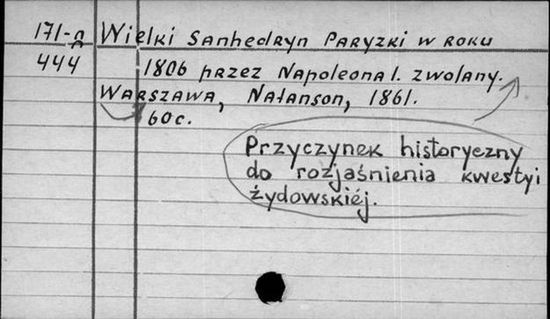 171-п Wielki Sanhedryn Paryzki w roku
444 1806 przez Napoleona I. zwołany.
Warszawa, Natanson, 1861.
60 c.
Przyczynek historyczny
do rozjaśnienia kwestyi
żydowskiéj.